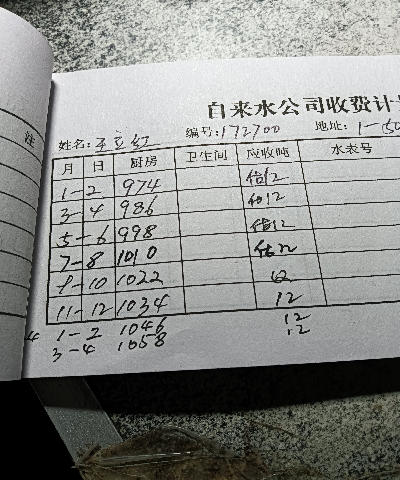 注
自来水公司收费计
姓名: 王立红 编号: 172700 地址: 1-150
月 日 厨房 卫生间 应收吨 水表号
1-2 974 估12
3-4 986 估12
5-6 998 估12
7-8 1010 估12
9-10 1022 12
11-12 1034 12
4 1-2 1046 12
3-4 1058 12